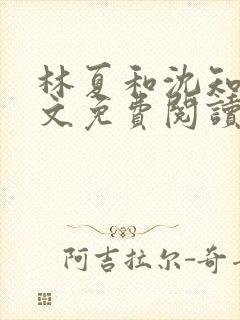 林夏和沈知
文免費閱讀
阿吉拉尔-奇